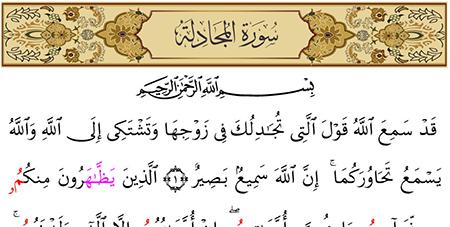 سُورَةُ المُجَادلة
بِسْمِ اللَّهِ الرَّحْمَٰنِ الرَّحِيمِ
قَدْ سَمِعَ اللَّهُ قَوْلَ الَّتِى تُجَٰدِلُكَ فِى زَوْجِهَا وَتَشْتَكِى إِلَى اللَّهِ وَاللَّهُ
يَسْمَعُ تَحَاوُرَكُمَا ۚ إِنَّ اللَّهَ سَمِيعٌۢ بَصِيرٌ ﴿١﴾ الَّذِينَ يَظَّهَّرُونَ مِنكُمُۥ